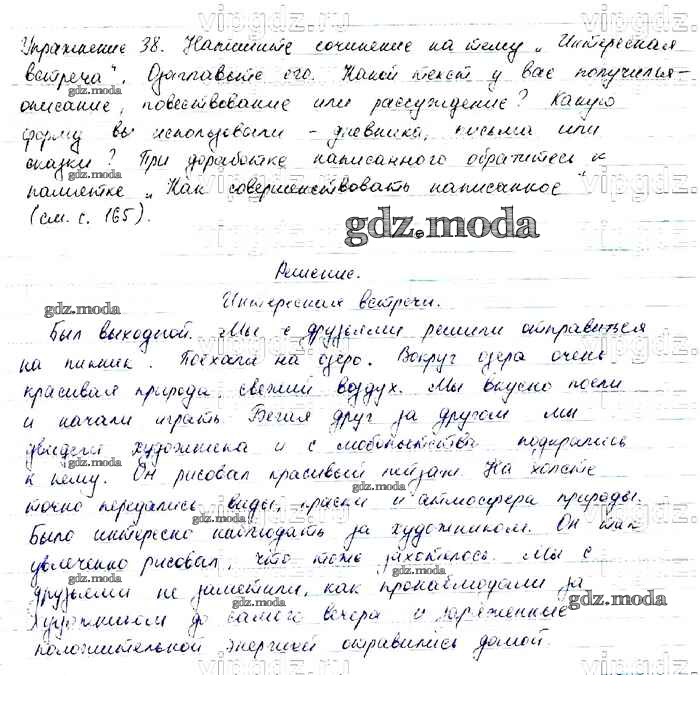 vipgdz.ru
Упражнение 38. Напишите сочинение на тему „Интересная
встреча". Озаглавьте его. Какой текст у вас получился -
gdz.moda
описание, повествование или рассуждение? Какую
форму вы использовали - дневника, письма или
сказки? При доработке написанного обратитесь к
gdz.moda
памятке „Как совершенствовать написанное"
vipgdz
(см. с. 165).
gdz.moda
Решение.
Интересная встреча.
gdz.moda
Был выходной. Мы с друзьями решили отправиться
на пикник. Поехали на озеро. Вокруг озера очень
gdz.moda
красивая природа, свежий воздух. Мы вкусно поели
и начали играть. Бегая друг за другом мы
увидели художника и с любопытством подкрались
gdz.moda
к нему. Он рисовал красивый пейзаж. На холсте
точно передались виды, краски и атмосфера природы.
gdz.moda
Было интересно наблюдать за художником. Он так
увлеченно рисовал, что тоже захотелось. Мы с
gdz.moda
друзьями не заметили, как пронаблюдали за
gdz.moda
художником до самого вечера и заряженные
gdz.moda
положительной энергией отправились домой.
vipgdz.ru